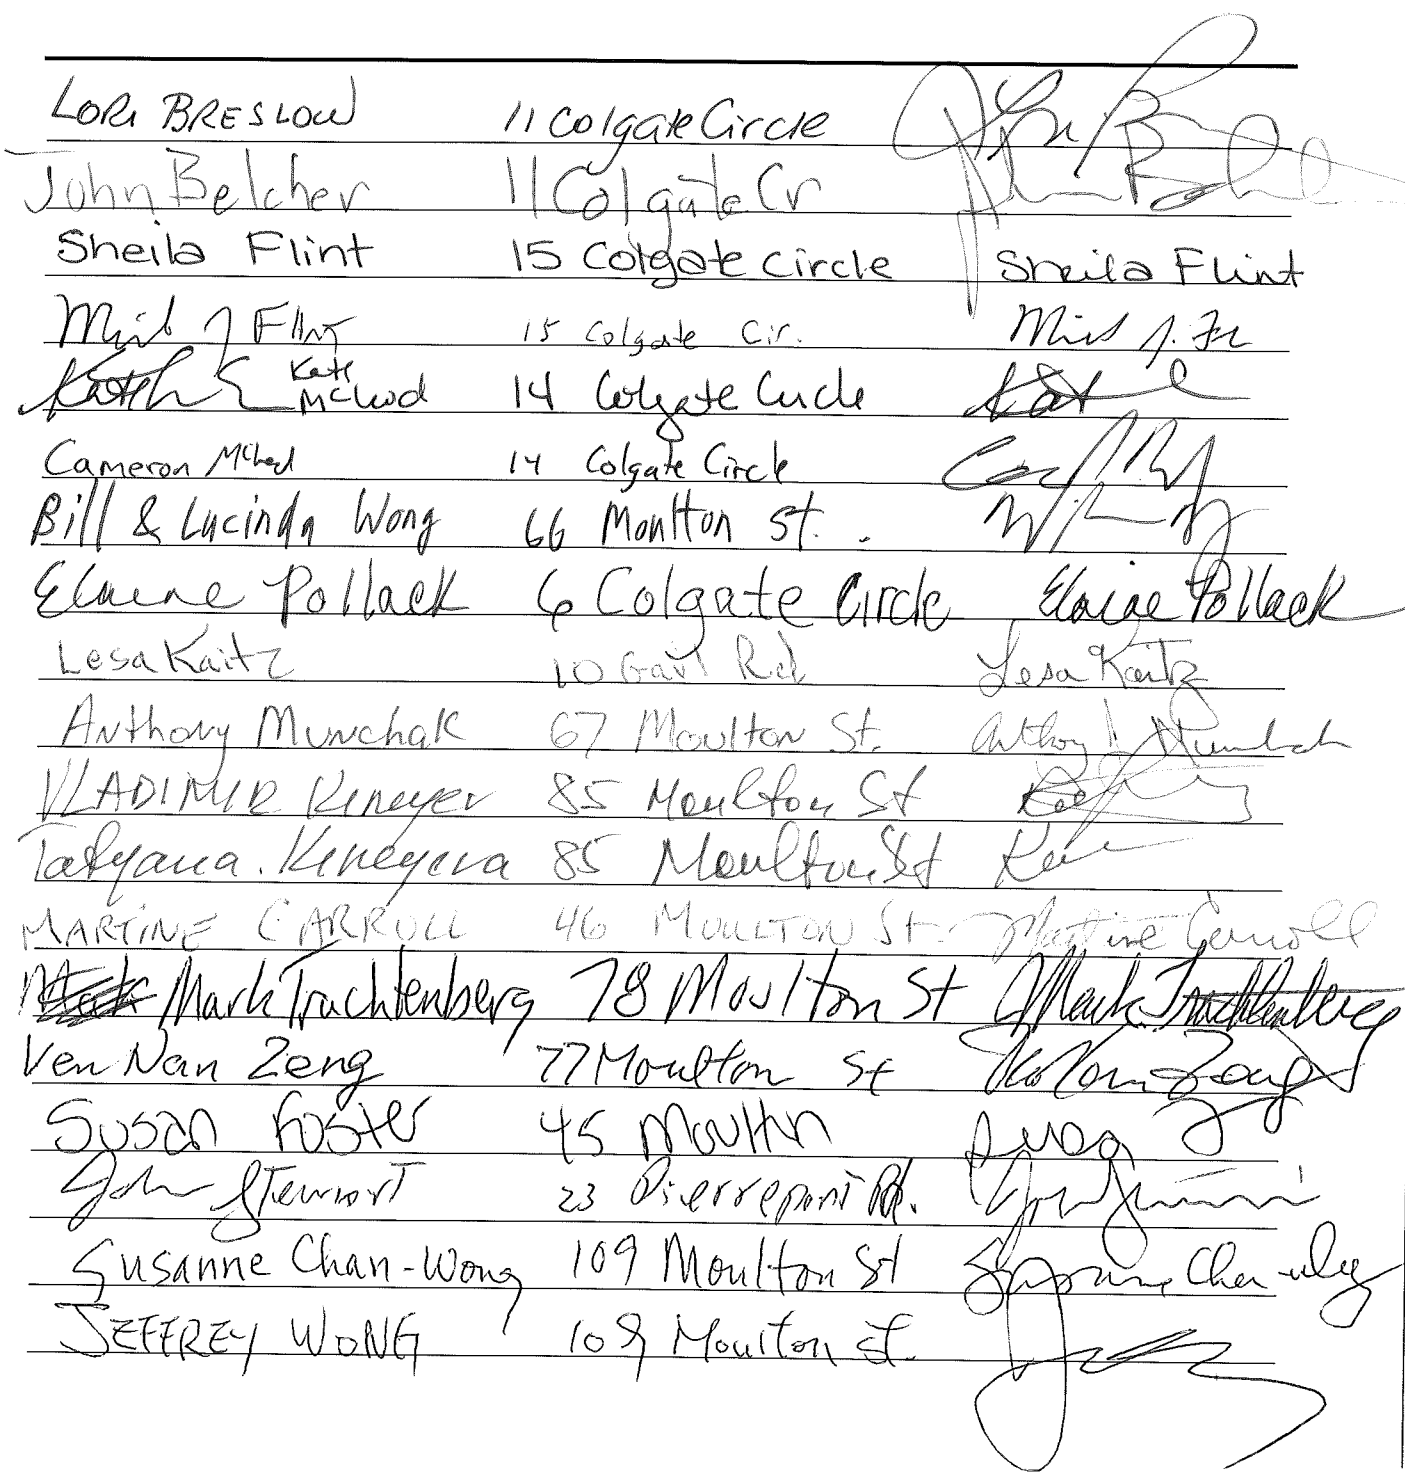 LORI BRESLOW 11 Colgate Circle
John Belcher 11 Colgate Cr
Sheila Flint 15 Colgate Circle Sheila Flint
J Flint 15 Colgate Cir.
Kate McLeod 14 Colgate Circle Kat
Cameron McLeod 14 Colgate Circle
Bill & Lucinda Wong 66 Moulton St.
Elaine Pollack 6 Colgate Circle Elaine Pollack
Lesa Kaitz 10 Gail Rd Lesa Kaitz
Anthony Munchak 67 Moulton St. Anthony Munchak
VLADIMIR Keneyer 85 Moulton St
Tatyana. Keneyeva 85 Moulton St
MARTINE CARROLL 46 MOULTON St. Martine Carroll
Mark Trachtenberg 78 Moulton St Mark Trachtenberg
Ven Nan Zeng 77 Moulton St
Susan Foster 45 Moultn Susan
John Stewart 23 Pierrepont Rd.
Susanne Chan-Wong 109 Moulton St
JEFFREY WONG 109 Moulton St.